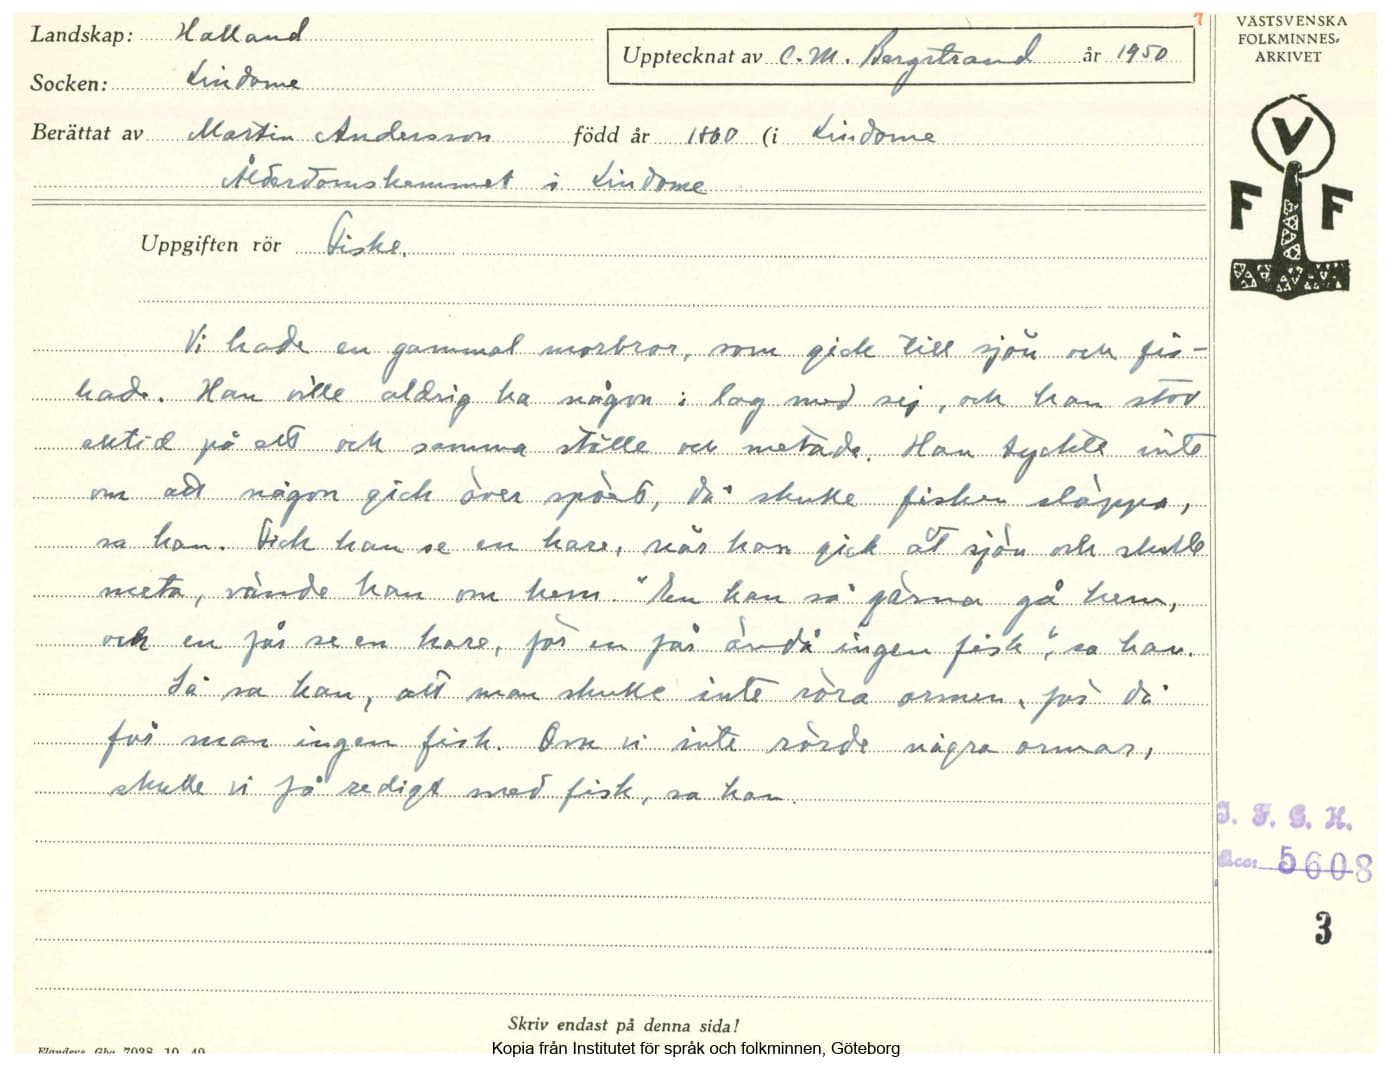 Landskap: Halland
Upptecknat av C. M. Bergstrand år 1950
VÄSTSVENSKA
FOLKMINNES-
ARKIVET
Socken: Lindome
Berättat av Martin Andersson född år 1860 (i Lindome
Ålderdomshemmet i Lindome
V
F F
Uppgiften rör Fiske.
Vi hade en gammal morbror, som gick till sjön och fis-
kade. Han ville aldrig ha någon i lag med sej, och han stod
alltid på ett och samma ställe och metade. Han tyckte inte
om att någon gick över spöet, då skulle fisken släppa,
sa han. Fick han se en hare, när han gick åt sjön och skulle
meta, vände han om hem. "En kan så gärna gå hem,
och en får se en hare, för en får ändå ingen fisk", sa han.
Så sa han, att man skulle inte röra ormen, för då
får man ingen fisk. Om vi inte rörde några ormar,
skulle vi få redigt med fisk, sa han.
I. F. G. H.
Acc. 5608
3
Skriv endast på denna sida!
Kopia från Institutet för språk och folkminnen, Göteborg